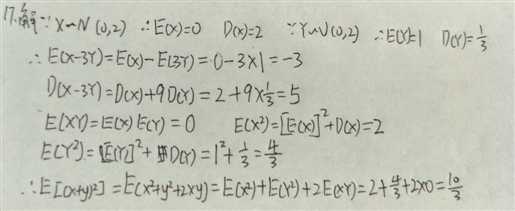 17.解∵X~N(0,2) ∴E(X)=0 D(X)=2 ∵Y~U(0,2) ∴E(Y)=1 D(Y)=1/3
∴E(X-3Y)=E(X)-E(3Y)=0-3×1=-3
D(X-3Y)=D(X)+9D(Y)=2+9×1/3=5
E(XY)=E(X)E(Y)=0 E(X²)=[E(X)]²+D(X)=2
E(Y²)=[E(Y)]²+D(Y)=1²+1/3=4/3
∴E[(X+Y)²]=E(X²+Y²+2XY)=E(X²)+E(Y²)+2E(XY)=2+4/3+2×0=10/3